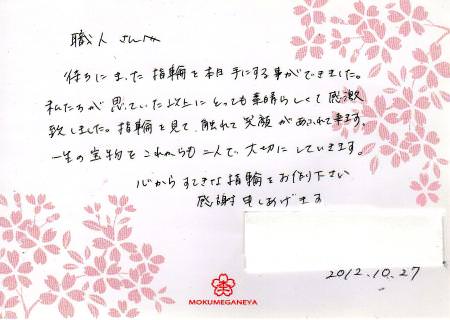 職人
待ちにまった指輪を本日手にする事ができました。
私たちが思っていた以上にとっても素晴らしくて感激
致しました。指輪を見て、触れて笑顔があふれて来ます。
一生の宝物をこれからも二人で大切にしていきます。
心からすてきな指輪をお作り下さい
感謝申しあげます
2012.10.27
MOKUMEGANEYA